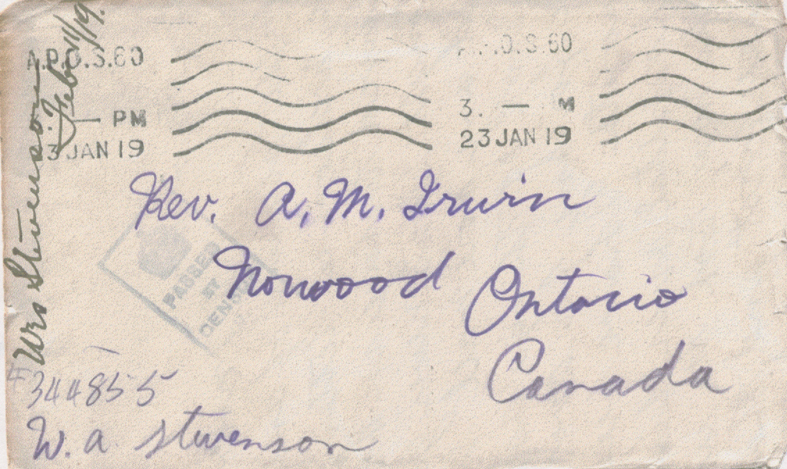 A.P.O.S.60
PM
3 JAN 19
A.P.O.S.60
3. — M
23 JAN 19
Wro Stevenson Feb 11/19.
Rev. A. M. Irwin
Norwood
Ontario
Canada
PASSED
BY
CENSOR
344855
W. A Stevenson